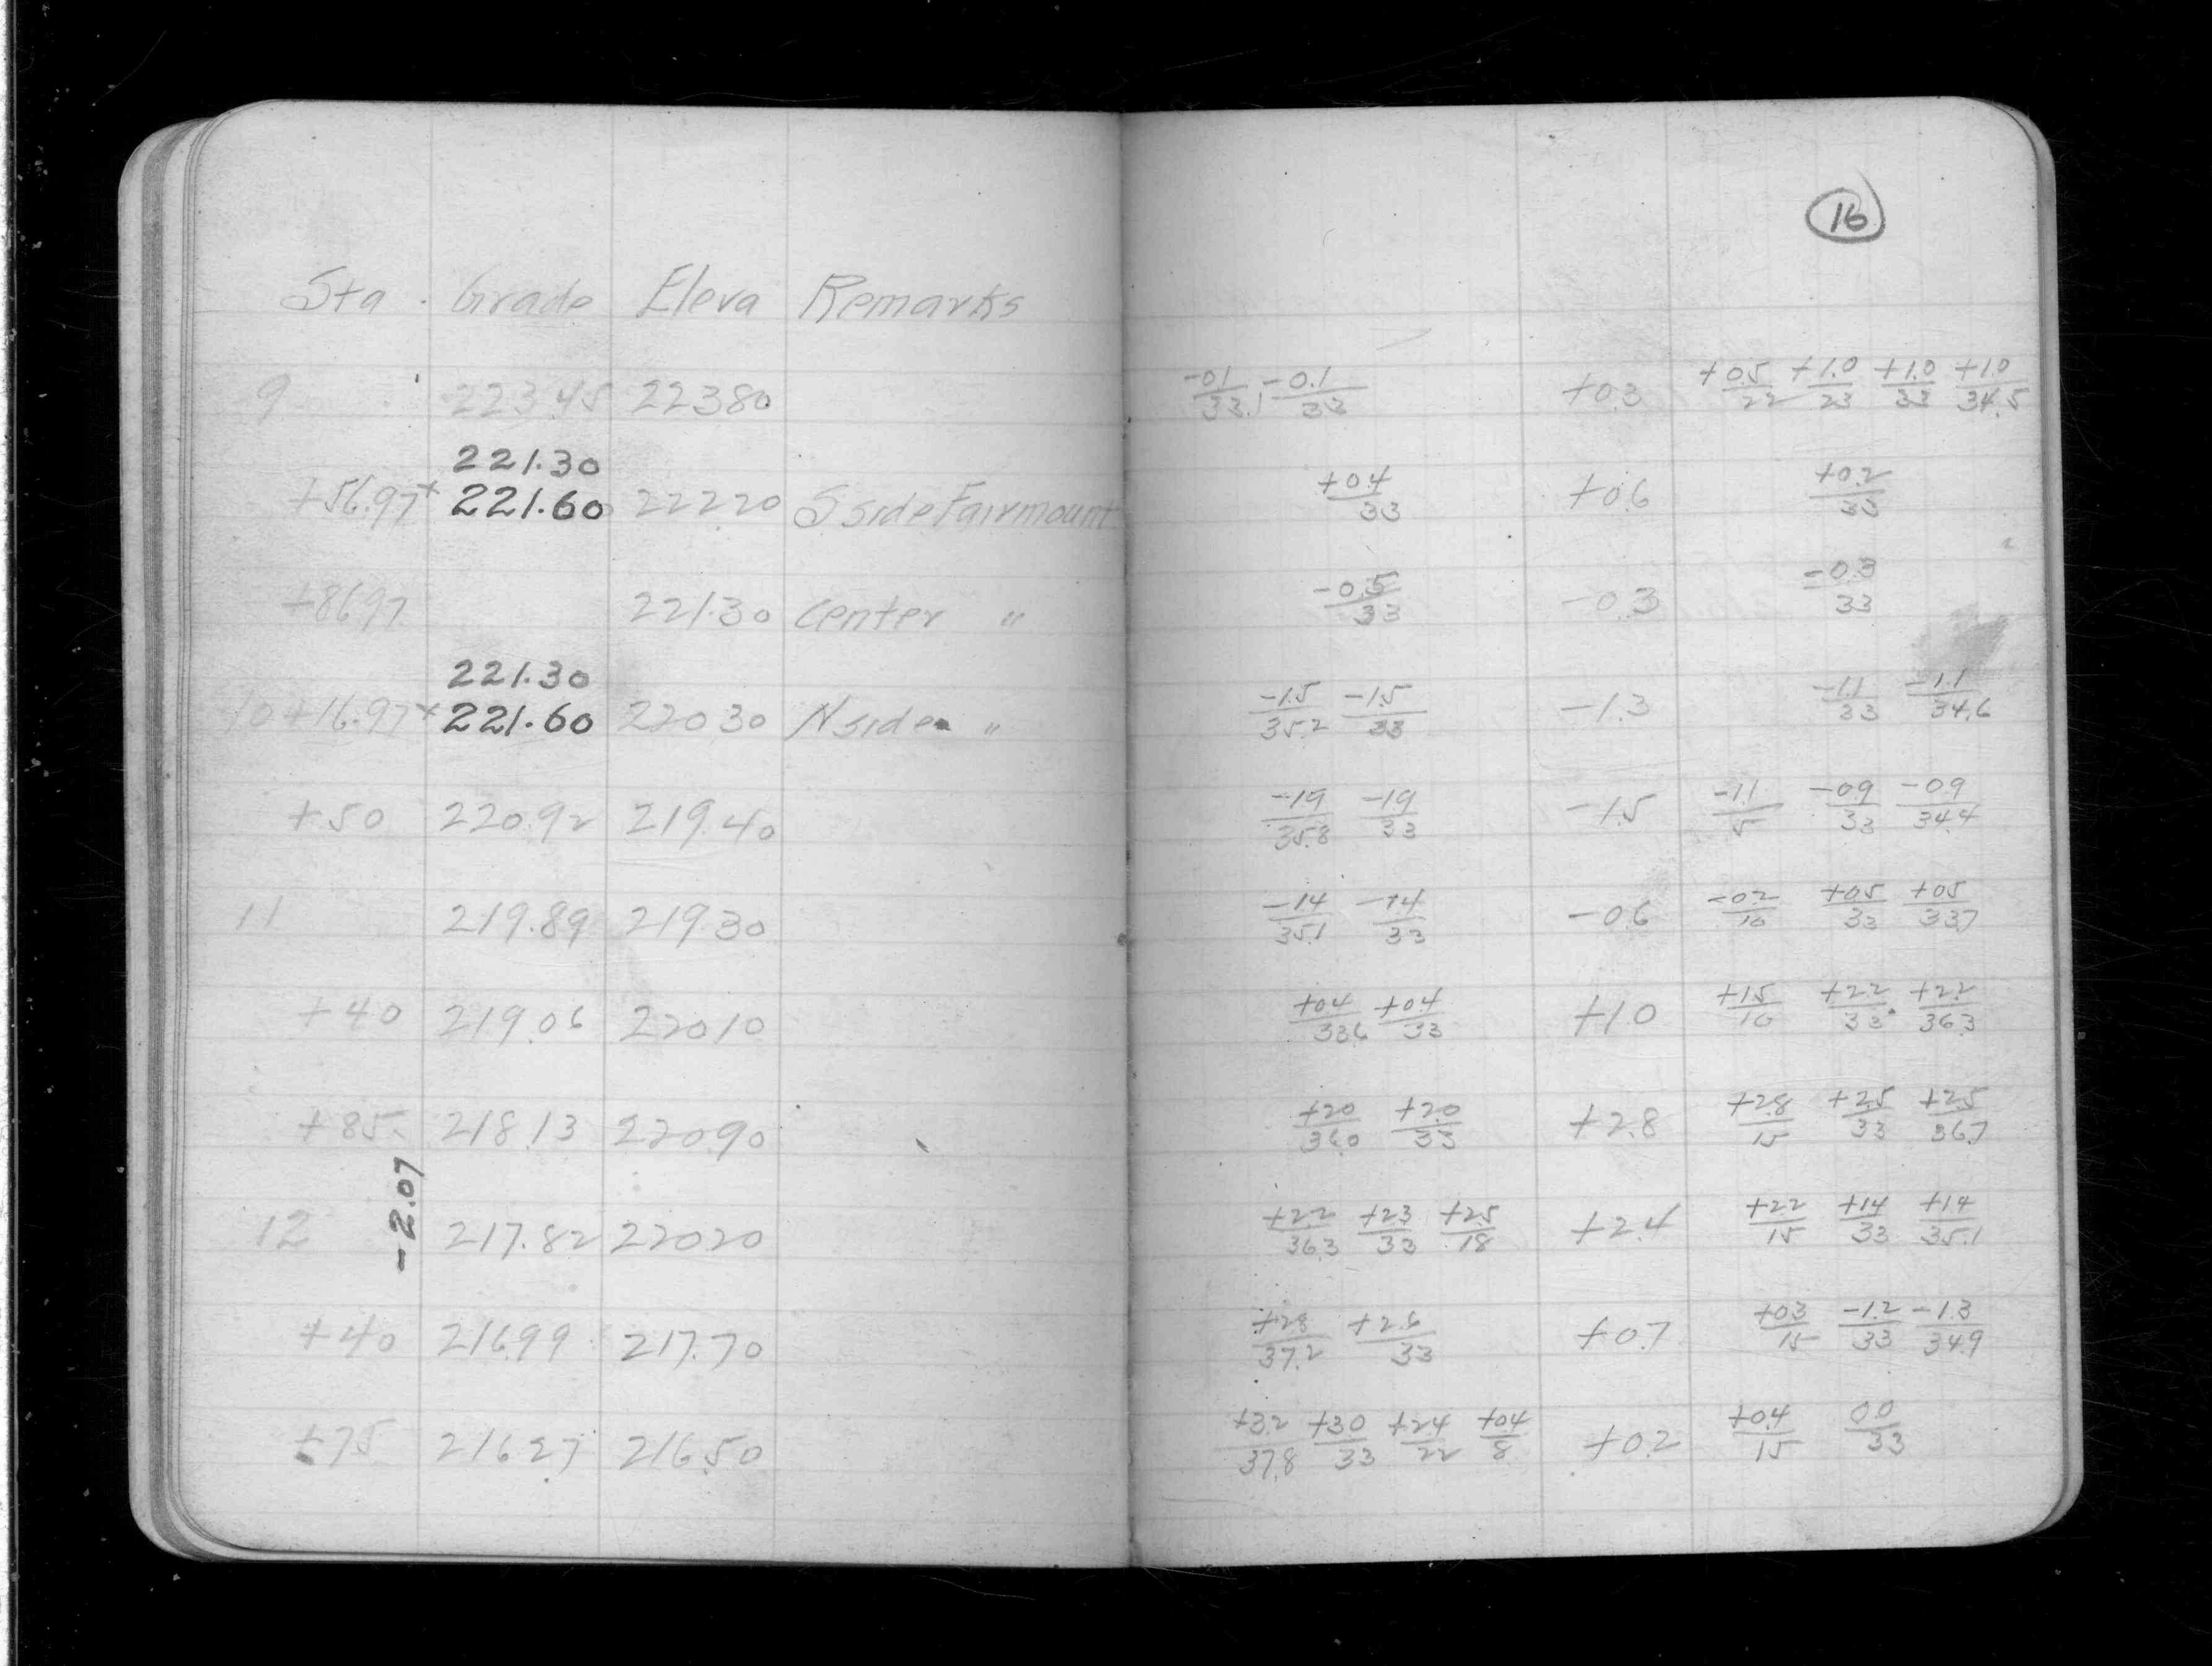 16
Sta. Grade Eleva Remarks
9 223.45 223.80 -0.1/33.1 -0.1/33 +0.3 +0.5/22 +1.0/23 +1.0/33 +1.0/34.5
221.30
+56.97 + 221.60 222.20 S side Fairmount +0.4/33 +0.6 +0.2/33
+86.97 221.30 Center " -0.5/33 -0.3 -0.3/33
221.30
10+16.97 + 221.60 220.30 N side " -1.5/35.2 -1.5/33 -1.3 -1.1/33 -1.1/34.6
+50 220.92 219.40 -1.9/35.8 -1.9/33 -1.5 -1.1/5 -0.9/33 -0.9/34.4
11 219.89 219.30 -1.4/35.1 -1.4/33 -0.6 -0.2/10 +0.5/33 +0.5/33.7
+40 219.06 220.10 +0.4/33.6 +0.4/33 +1.0 +1.5/10 +2.2/33 +2.2/36.3
+85 218.13 220.90 +2.0/36.0 +2.0/33 +2.8 +2.8/15 +2.5/33 +2.5/36.7
-2.07
12 217.82 220.20 +2.2/36.3 +2.3/33 +2.5/18 +2.4 +2.2/15 +1.4/33 +1.4/35.1
+40 216.99 217.70 +2.8/37.2 +2.6/33 +0.7 +0.3/15 -1.2/33 -1.3/34.9
+75 216.27 216.50 +3.2/37.8 +3.0/33 +2.4/22 +0.4/8 +0.2 +0.4/15 0.0/33